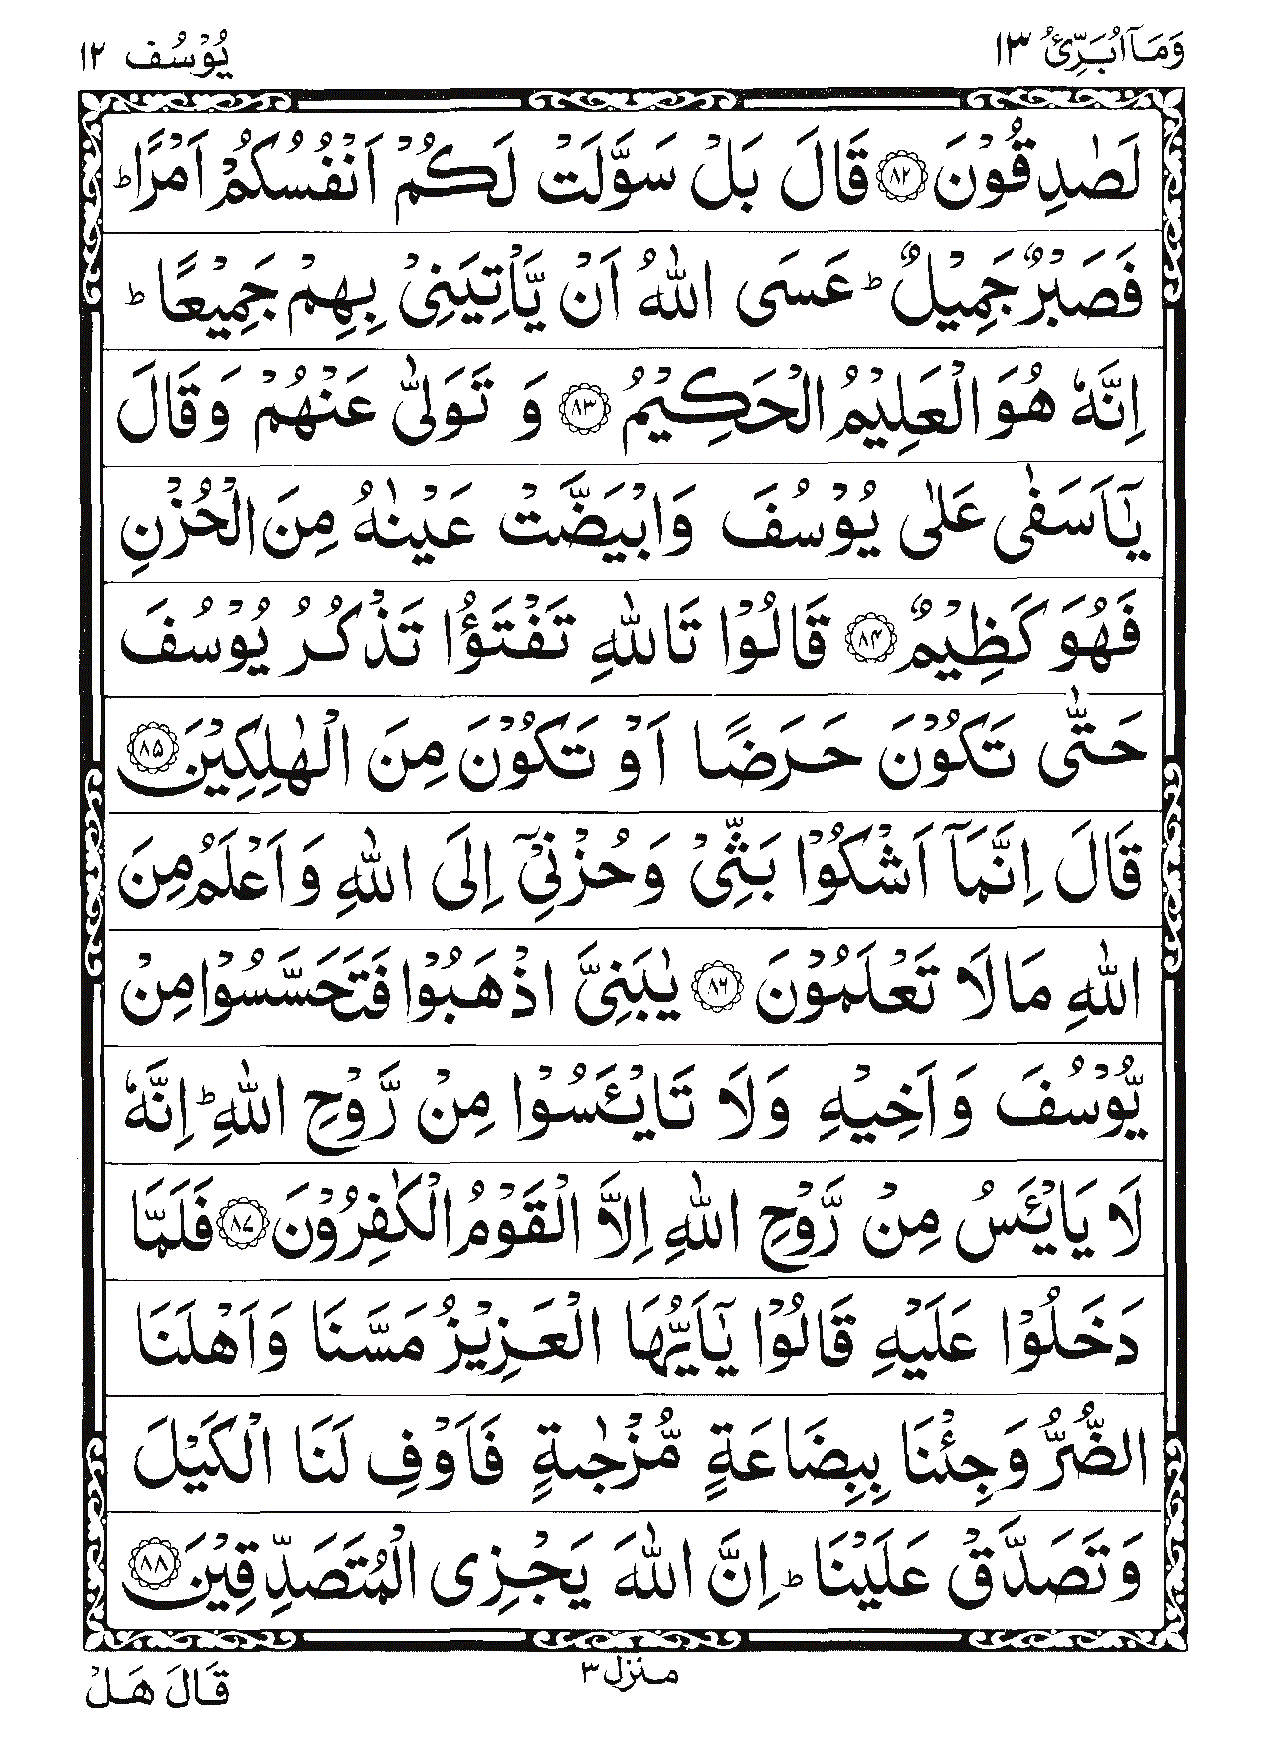 وَمَاۤ اُبَرِّئُ ١٣
يُوْسُف ١٢
لَصٰدِقُوْنَ ﴿۸۲﴾ قَالَ بَلْ سَوَّلَتْ لَكُمْ اَنْفُسُكُمْ اَمْرًا ؕ
فَصَبْرٌ جَمِيْلٌ ؕ عَسَى اللّٰهُ اَنْ يَّاْتِيَنِيْ بِهِمْ جَمِيْعًا ؕ
اِنَّهٗ هُوَ الْعَلِيْمُ الْحَكِيْمُ ﴿۸۳﴾ وَ تَوَلّٰى عَنْهُمْ وَقَالَ
يٰۤاَسَفٰى عَلٰى يُوْسُفَ وَابْيَضَّتْ عَيْنٰهُ مِنَ الْحُزْنِ
فَهُوَ كَظِيْمٌ ﴿۸۴﴾ قَالُوْا تَاللّٰهِ تَفْتَؤُا تَذْكُرُ يُوْسُفَ
حَتّٰى تَكُوْنَ حَرَضًا اَوْ تَكُوْنَ مِنَ الْهٰلِكِيْنَ ﴿۸۵﴾
قَالَ اِنَّمَاۤ اَشْكُوْا بَثِّيْ وَحُزْنِيْۤ اِلَى اللّٰهِ وَاَعْلَمُ مِنَ
اللّٰهِ مَا لَا تَعْلَمُوْنَ ﴿۸۶﴾ يٰبَنِيَّ اذْهَبُوْا فَتَحَسَّسُوْا مِنْ
يُّوْسُفَ وَاَخِيْهِ وَلَا تَايْـَٔسُوْا مِنْ رَّوْحِ اللّٰهِ ؕ اِنَّهٗ
لَا يَايْـَٔسُ مِنْ رَّوْحِ اللّٰهِ اِلَّا الْقَوْمُ الْكٰفِرُوْنَ ﴿۸۷﴾ فَلَمَّا
دَخَلُوْا عَلَيْهِ قَالُوْا يٰۤاَيُّهَا الْعَزِيْزُ مَسَّنَا وَاَهْلَنَا
الضُّرُّ وَجِئْنَا بِبِضَاعَةٍ مُّزْجٰىةٍ فَاَوْفِ لَنَا الْكَيْلَ
وَتَصَدَّقْ عَلَيْنَا ؕ اِنَّ اللّٰهَ يَجْزِى الْمُتَصَدِّقِيْنَ ﴿۸۸﴾
منزل ٣
قَالَ هَلْ